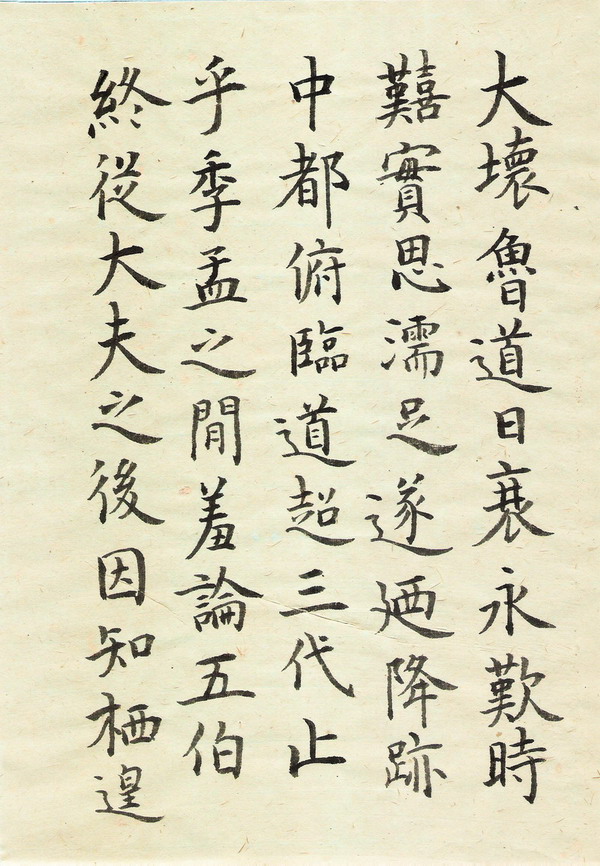 大壞魯道日衰永歎時
囏實思濡足遂廼降跡
中都俯臨道超三代止
乎季孟之閒羞論五伯
終從大夫之後因知栖遑